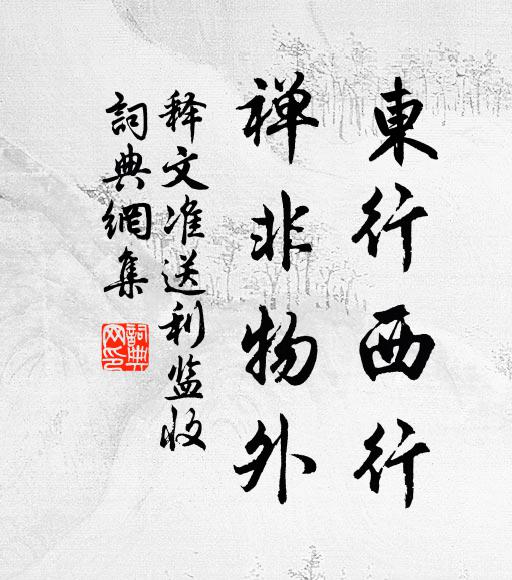 東行西行
禅非物外
释文准送利监收
詞典網集
詞典
网印